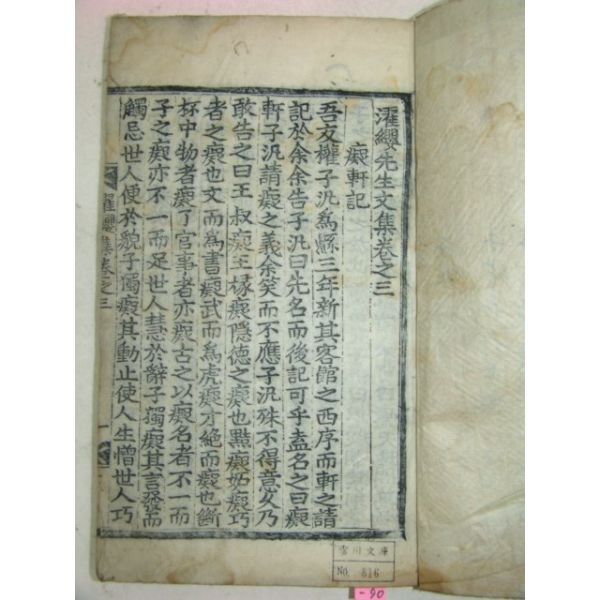 濯纓先生文集卷之三
癡軒記
吾友權子汎爲縣三年新其客館之西序而軒之請
記於余余告子汎曰先名而後記可乎盍名之曰癡
軒子汎請癡之義余笑而不應子汎殊不得意久乃
敢告之曰王叔癡王掾癡隱德之癡也黠癡姤癡巧
者之癡也文而爲書癡武而爲虎癡才絶而癡也斷
杯中物者癡了官事者亦癡古之以癡名者不一而
子之癡亦不一而足世人慧於辭子獨癡其言發而
觸忌世人便於貌子獨癡其動止使人生憎世人巧
濯纓集卷之三
一
雪川文庫
No. 816
-90